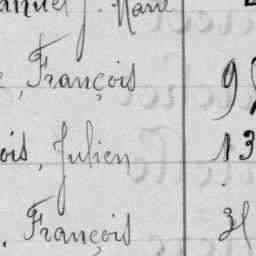 anuel J. Marie
, François 9
ois, Julien 13
. François 31